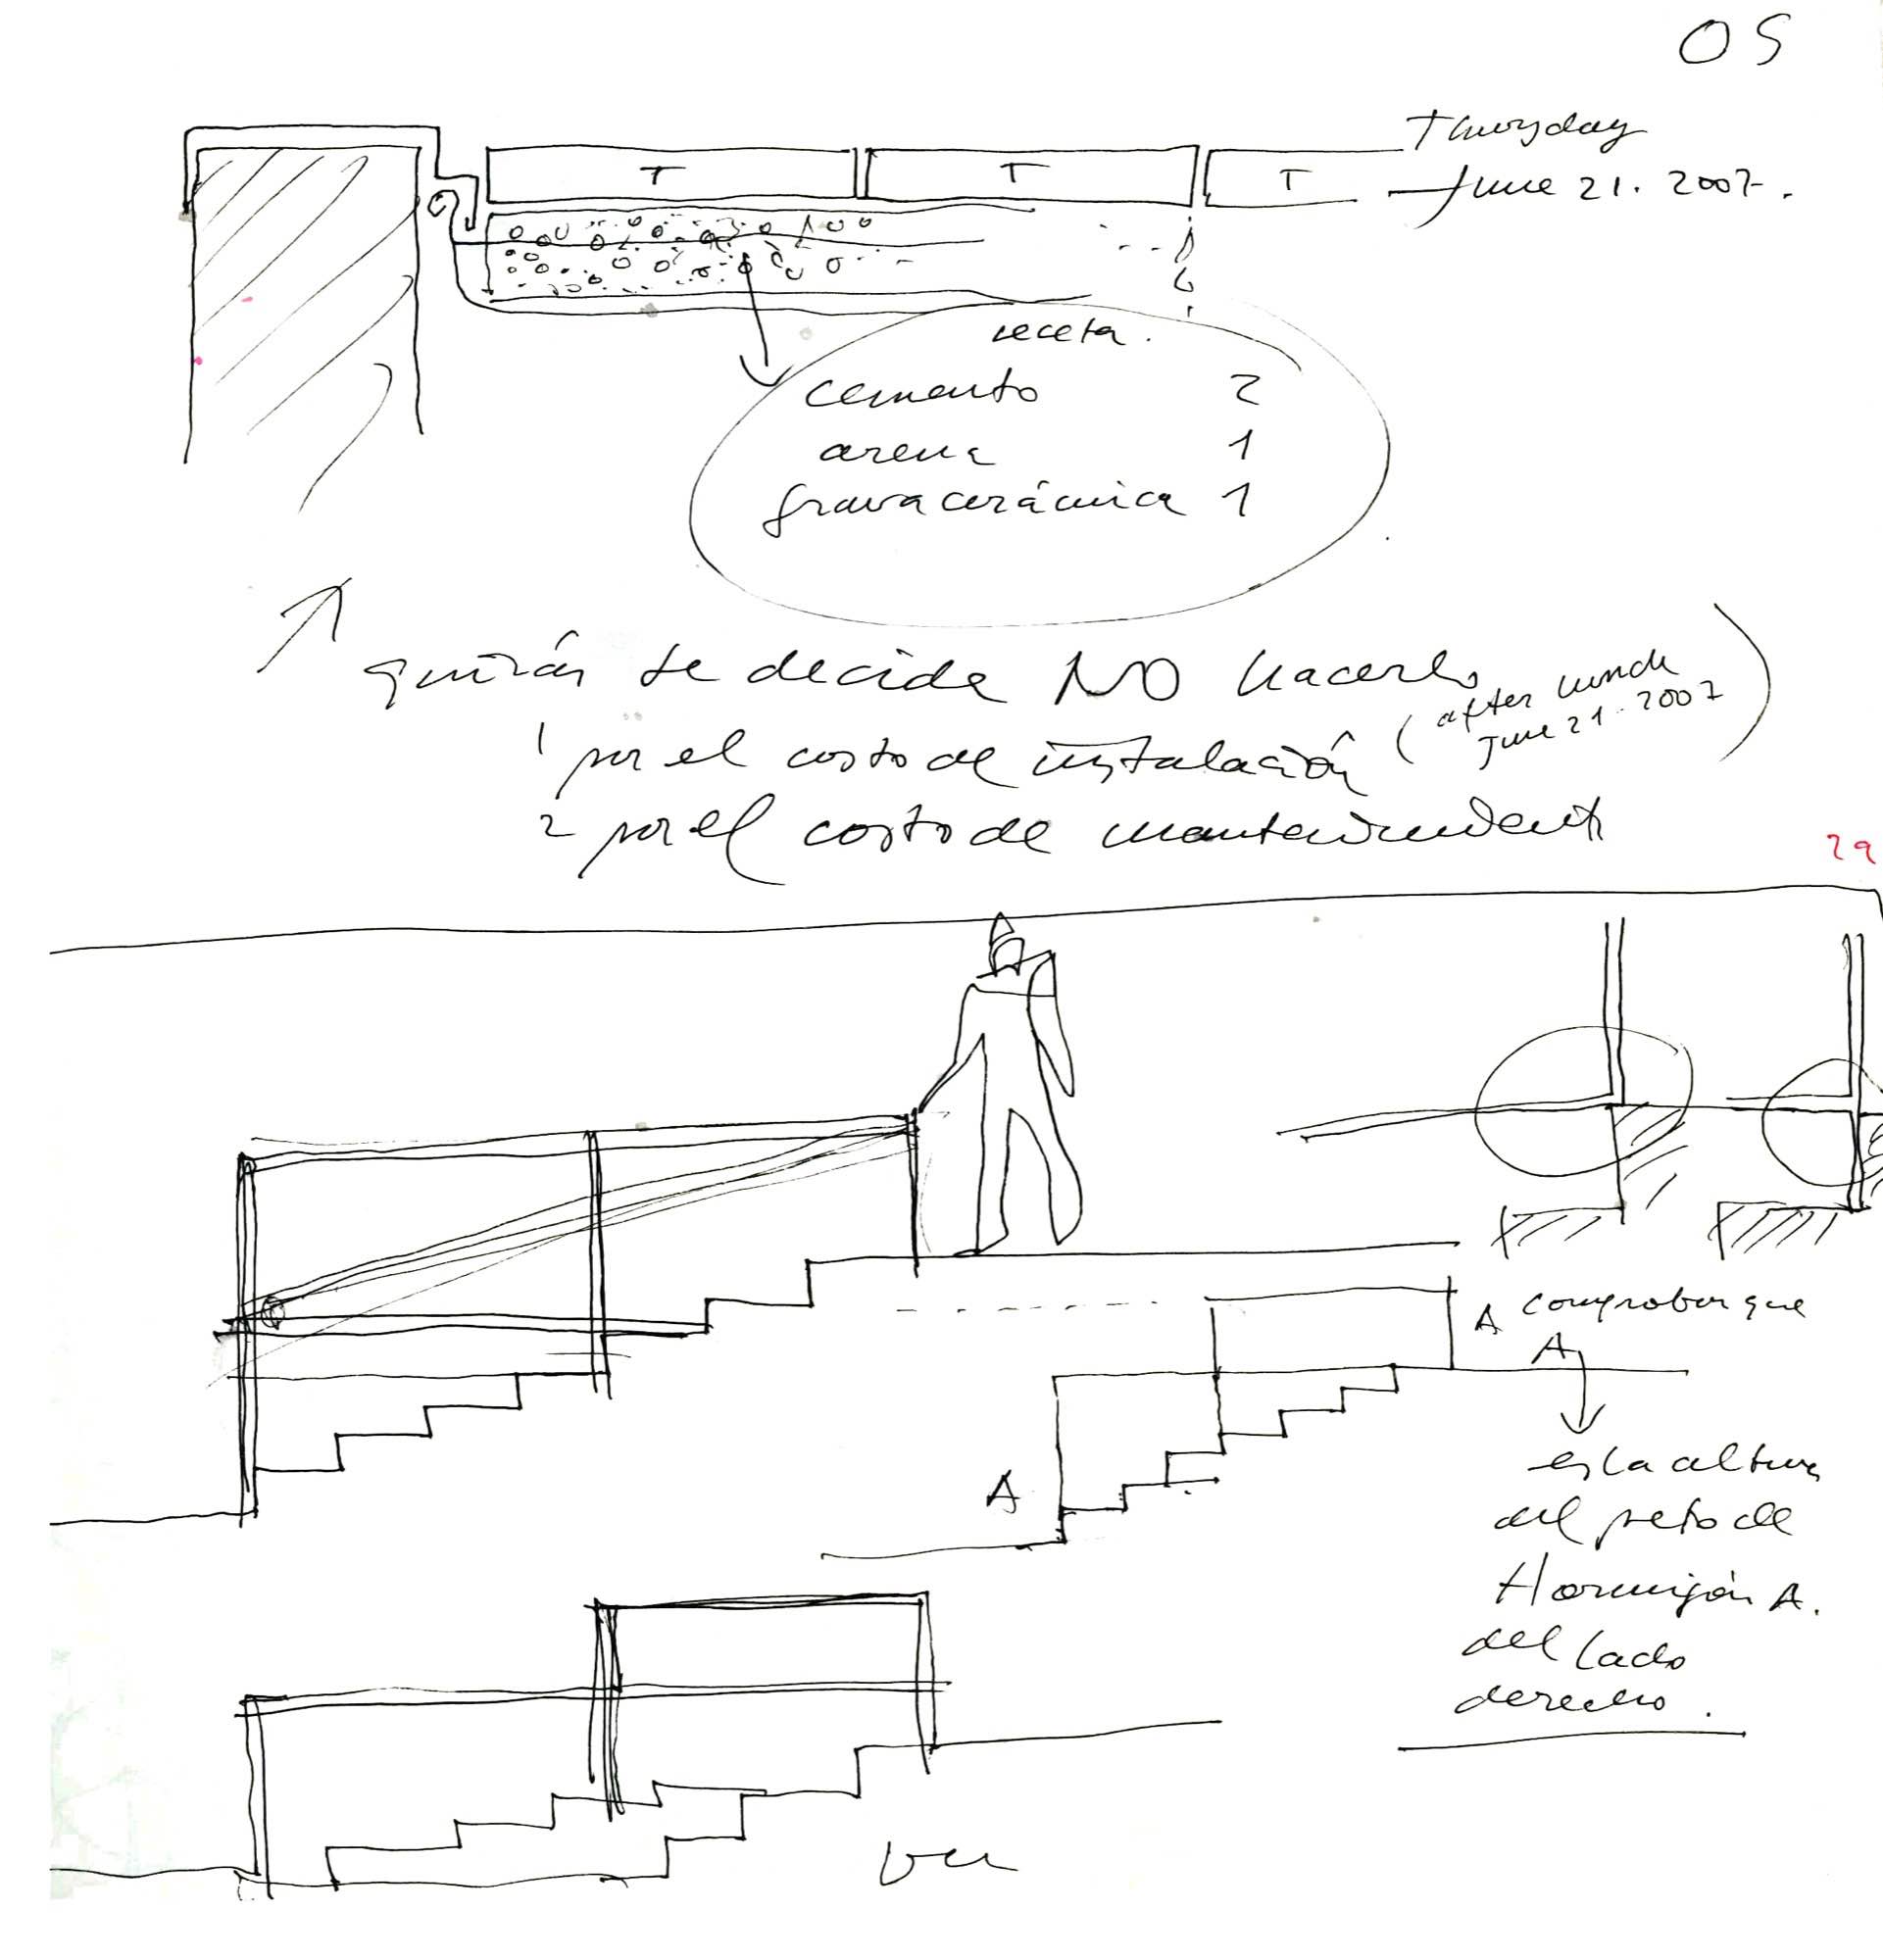 OS
Thursday
June 21. 2007.
T T T
receta.
cemento 2
arena 1
grava cerámica 1
quizás se decide NO hacerlo
(after lunch
June 21. 2007)
1 por el costo de instalación
2 por el costo de mantenimiento
29
A comprobar que
A
es la altura
del peto de
Hormigón A.
del lado
derecho.
A